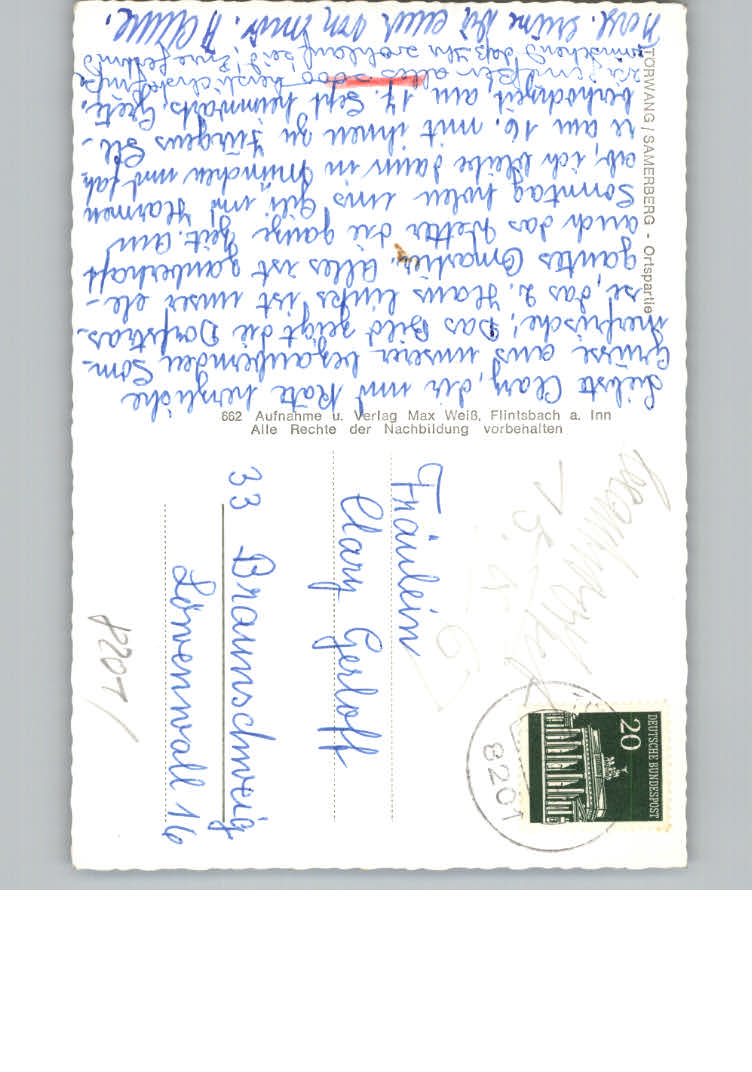 TÖRWANG / SAMERBERG - Ortspartie
Liebste Clary, dir und Kate herzliche
Grüsse aus unserer bezaubernden Som-
merfrische! Das Bild zeigt die Dorfstras-
se, das 2. Haus links ist unser ele-
gantes Quartier. Alles ist zauberhaft
auch das Wetter die ganze Zeit. Am
Sonntag holen uns Gili und Harmen
ab, ich bleibe dann in München und fah-
re am 16. mit ihnen zu Jürgens Sil-
berhochzeit am 17. Sept heimwärts. Grete.
alles
daß Ihr wohlauf seid!
Herzl. Grüße Dir auch von
662 Aufnahme u. Verlag Max Weiß, Flintsbach a. Inn
Alle Rechte der Nachbildung vorbehalten
Fräulein
Clary Gerloff
33 Braunschweig
Löwenwall 16
8201
DEUTSCHE BUNDESPOST
20
8201